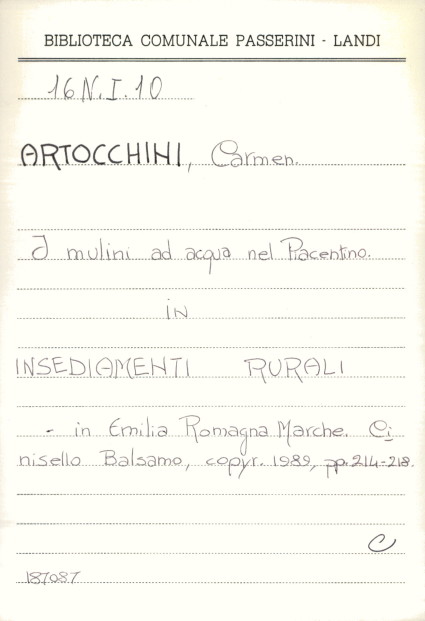 BIBLIOTECA COMUNALE PASSERINI - LANDI
16 N. I. 10
ARTOCCHINI, Carmen.
I mulini ad acqua nel Piacentino.
in
INSEDIAMENTI RURALI
- in Emilia Romagna Marche. Ci
nisello Balsamo, copyr. 1989, pp. 214-218.
C
187087